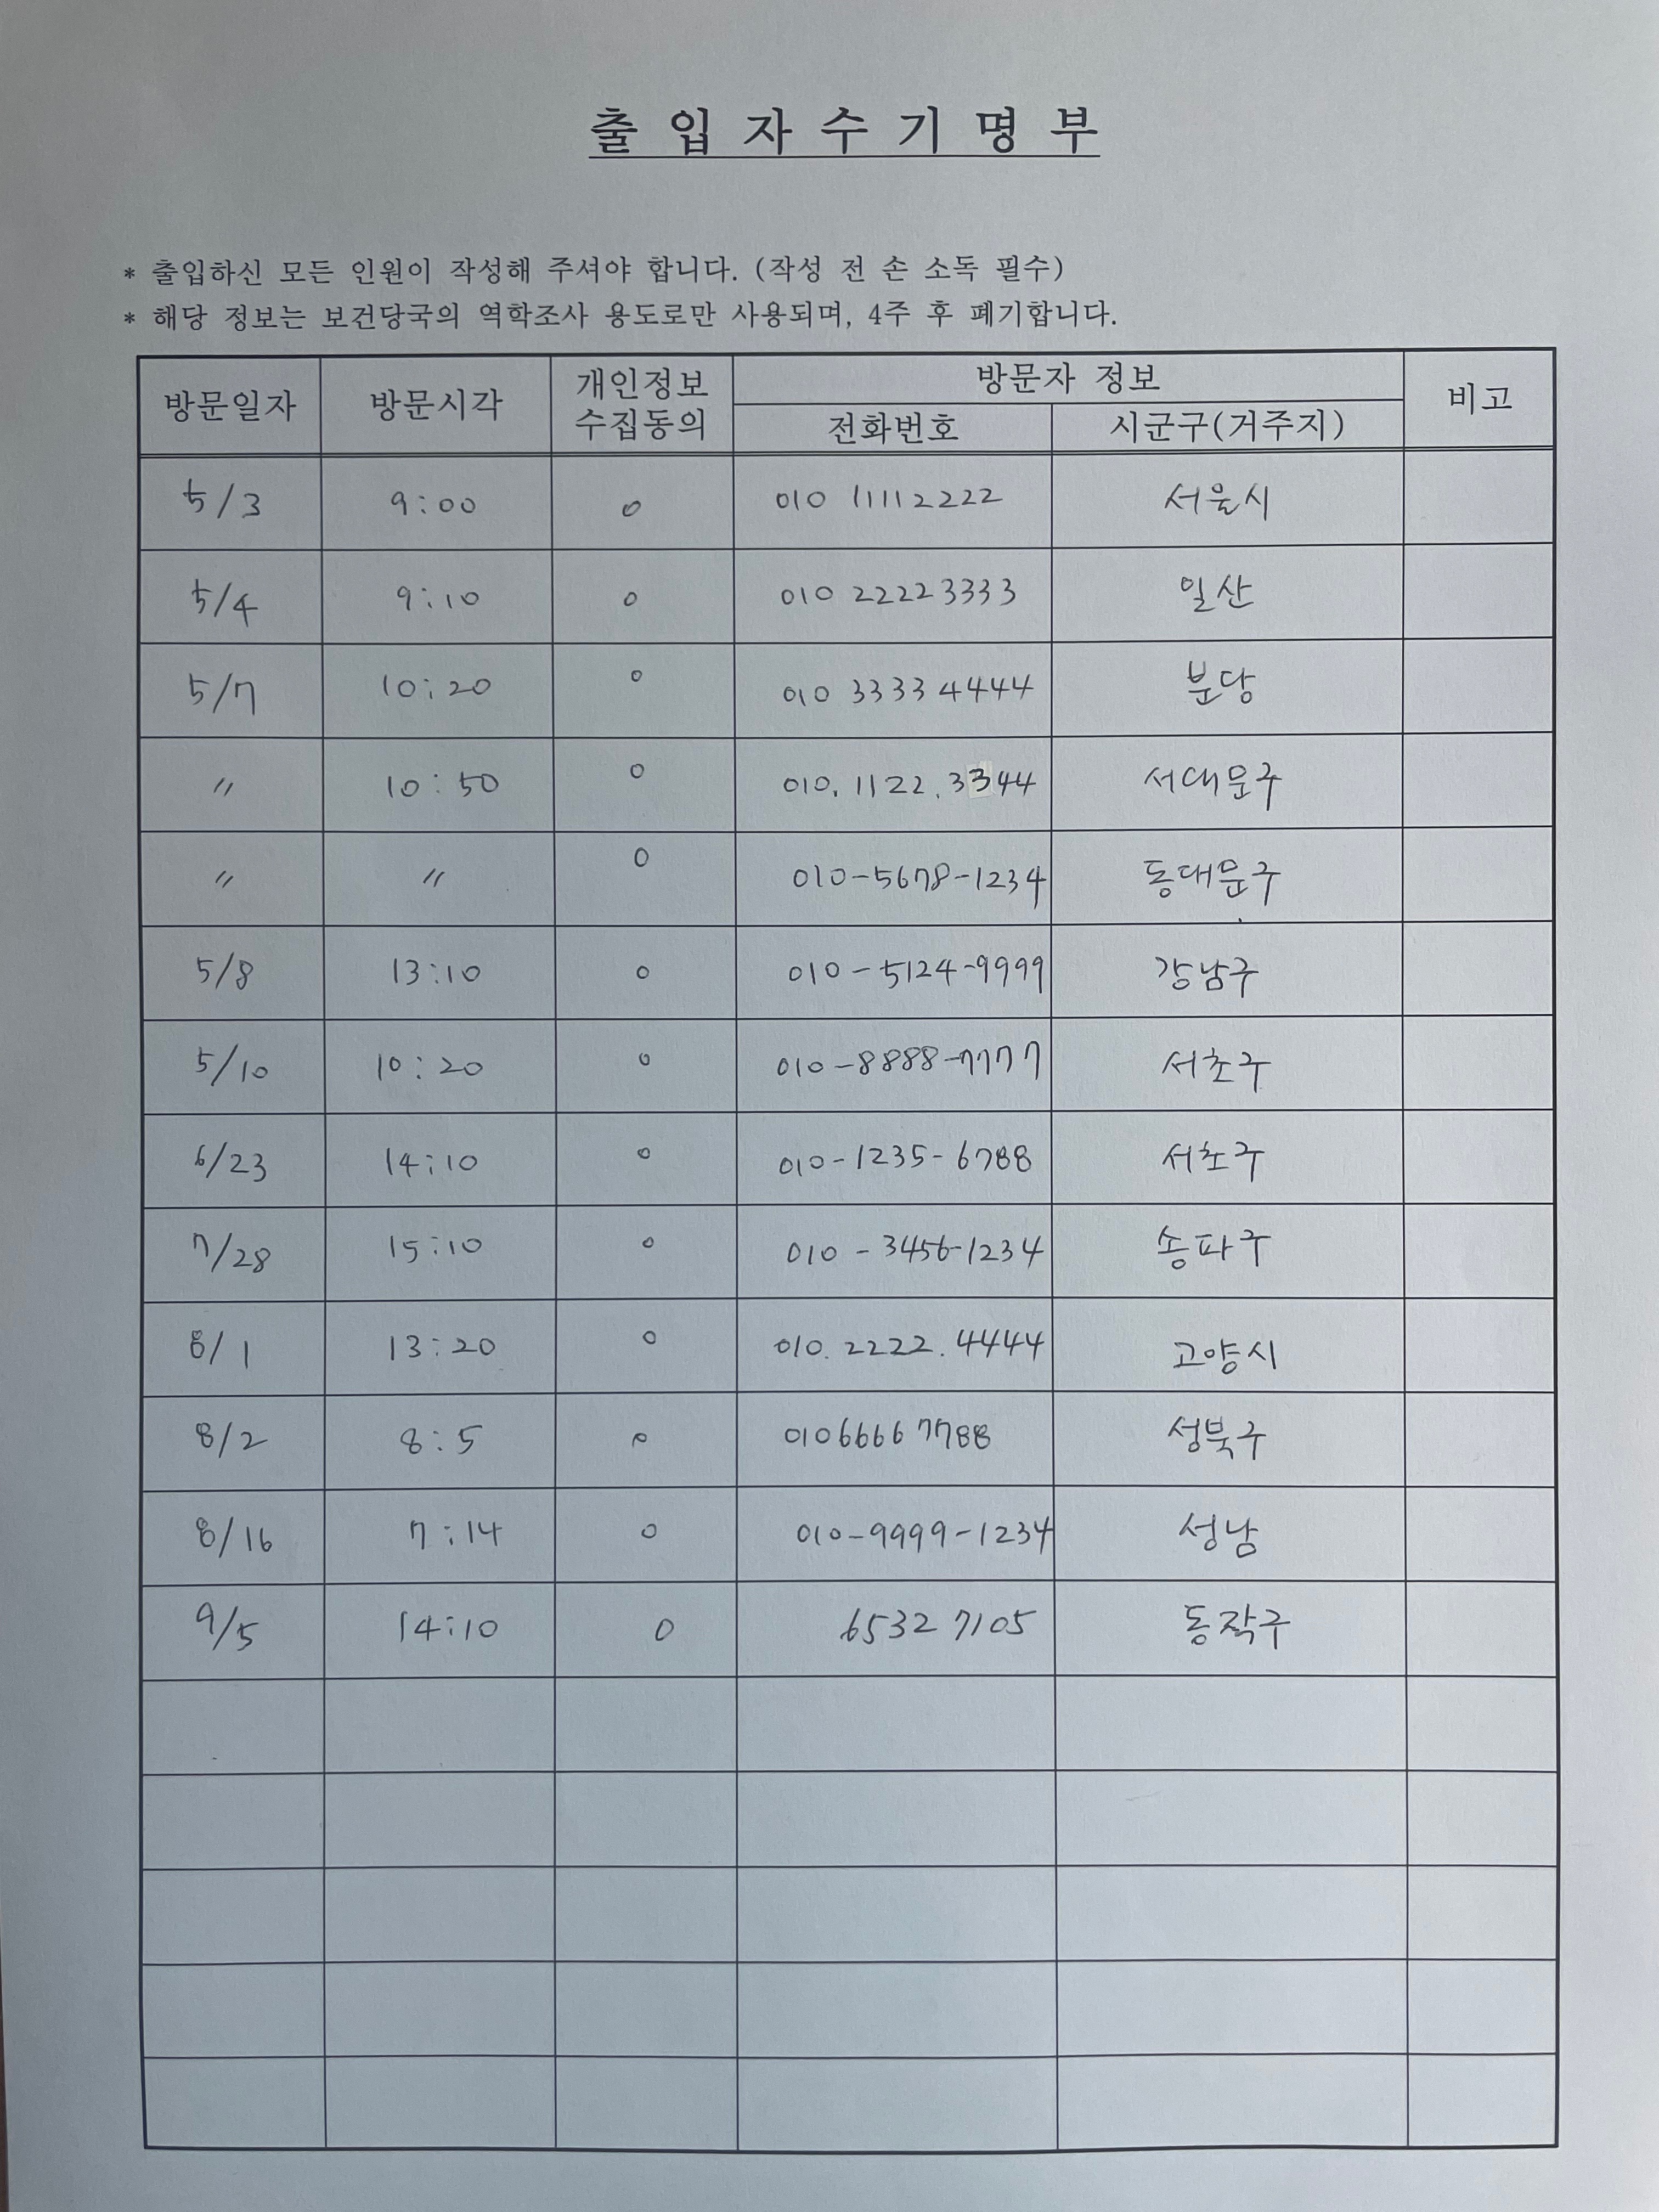 출 입 자 수 기 명 부
* 출입하신 모든 인원이 작성해 주셔야 합니다. (작성 전 손 소독 필수)
* 해당 정보는 보건당국의 역학조사 용도로만 사용되며, 4주 후 폐기합니다.
방문일자 방문시각 개인정보 수집동의 방문자 정보 비고
전화번호 시군구(거주지)
5/3 9:00 o 010 11112222 서울시
5/4 9:10 o 010 22223333 일산
5/7 10:20 o 010 3333 4444 분당
〃 10:50 o 010.1122.3344 서대문구
〃 〃 o 010-5678-1234 동대문구
5/8 13:10 o 010-5124-9999 강남구
5/10 10:20 o 010-8888-7777 서초구
6/23 14:10 o 010-1235-6788 서초구
7/28 15:10 o 010-3456-1234 송파구
8/1 13:20 o 010.2222.4444 고양시
8/2 8:5 o 01066667788 성북구
8/16 7:14 o 010-9999-1234 성남
9/5 14:10 o 6532 7105 동작구